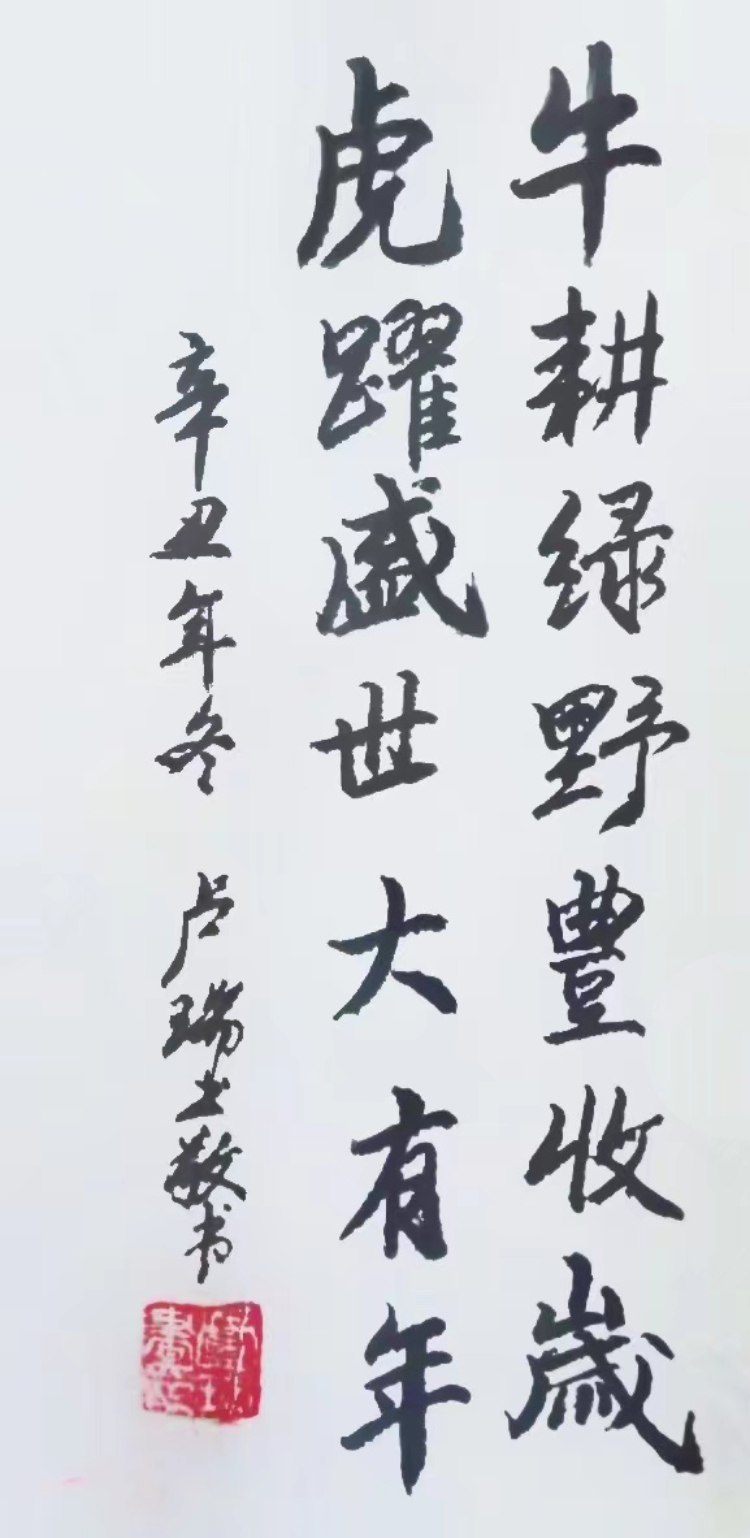 牛耕绿野豐收歲
虎躍盛世大有年
辛丑年冬 卢瑞士敬书